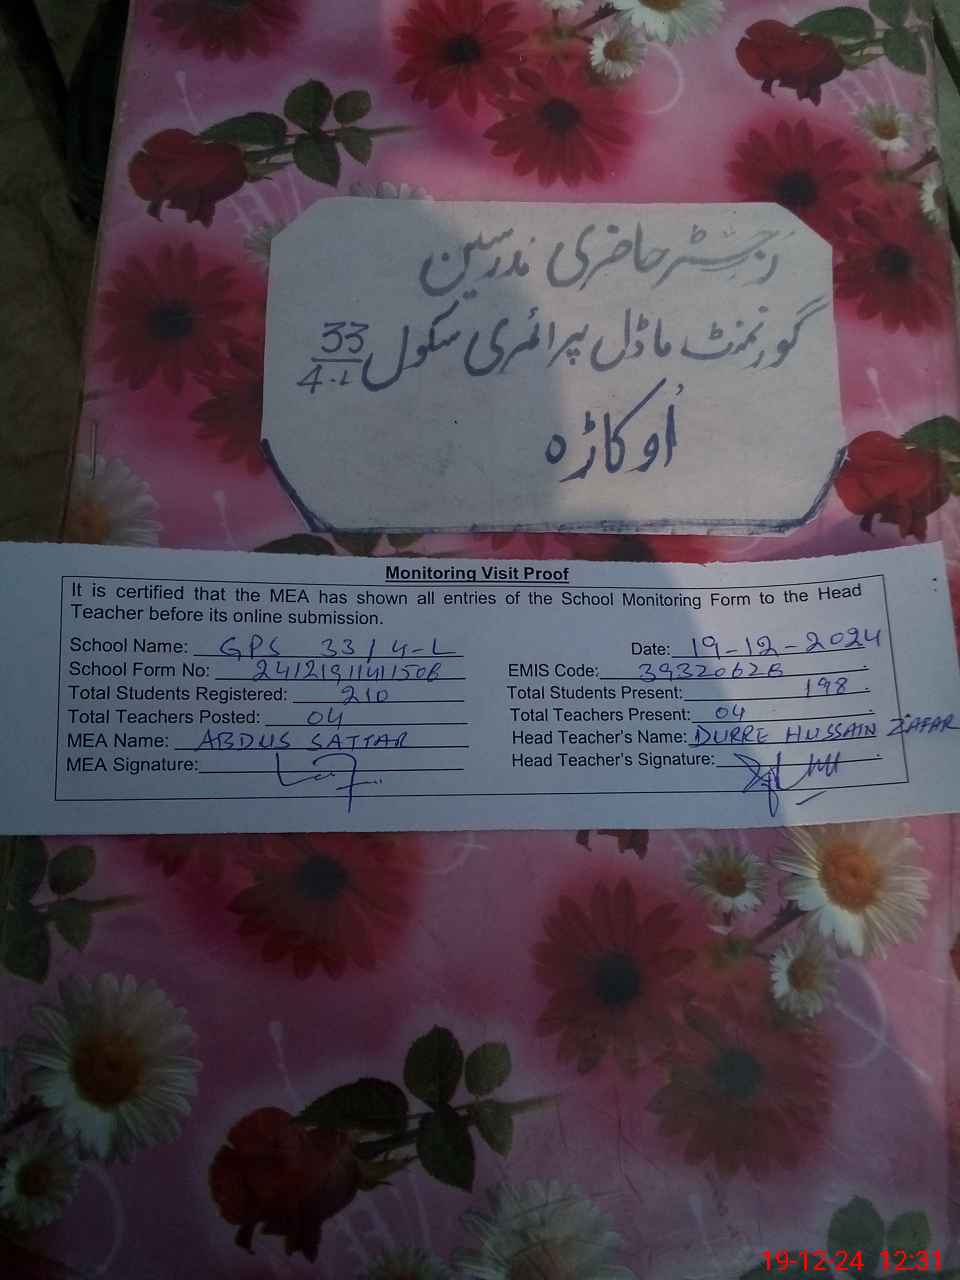 رجسٹر حاضری مدرسین
گورنمنٹ ماڈل پرائمری سکول 33/4.L
اُوکاڑہ
Monitoring Visit Proof
It is certified that the MEA has shown all entries of the School Monitoring Form to the Head
Teacher before its online submission.
School Name: GPS 33/4-L Date: 19-12-2024
School Form No: EMIS Code: 39320626
Total Students Registered: 210 Total Students Present: 198
Total Teachers Posted: 04 Total Teachers Present: 04
MEA Name: ABDUS SATTAR Head Teacher's Name: DURRE HUSSAIN ZAFAR
MEA Signature: Head Teacher's Signature:
19-12-24 12:31